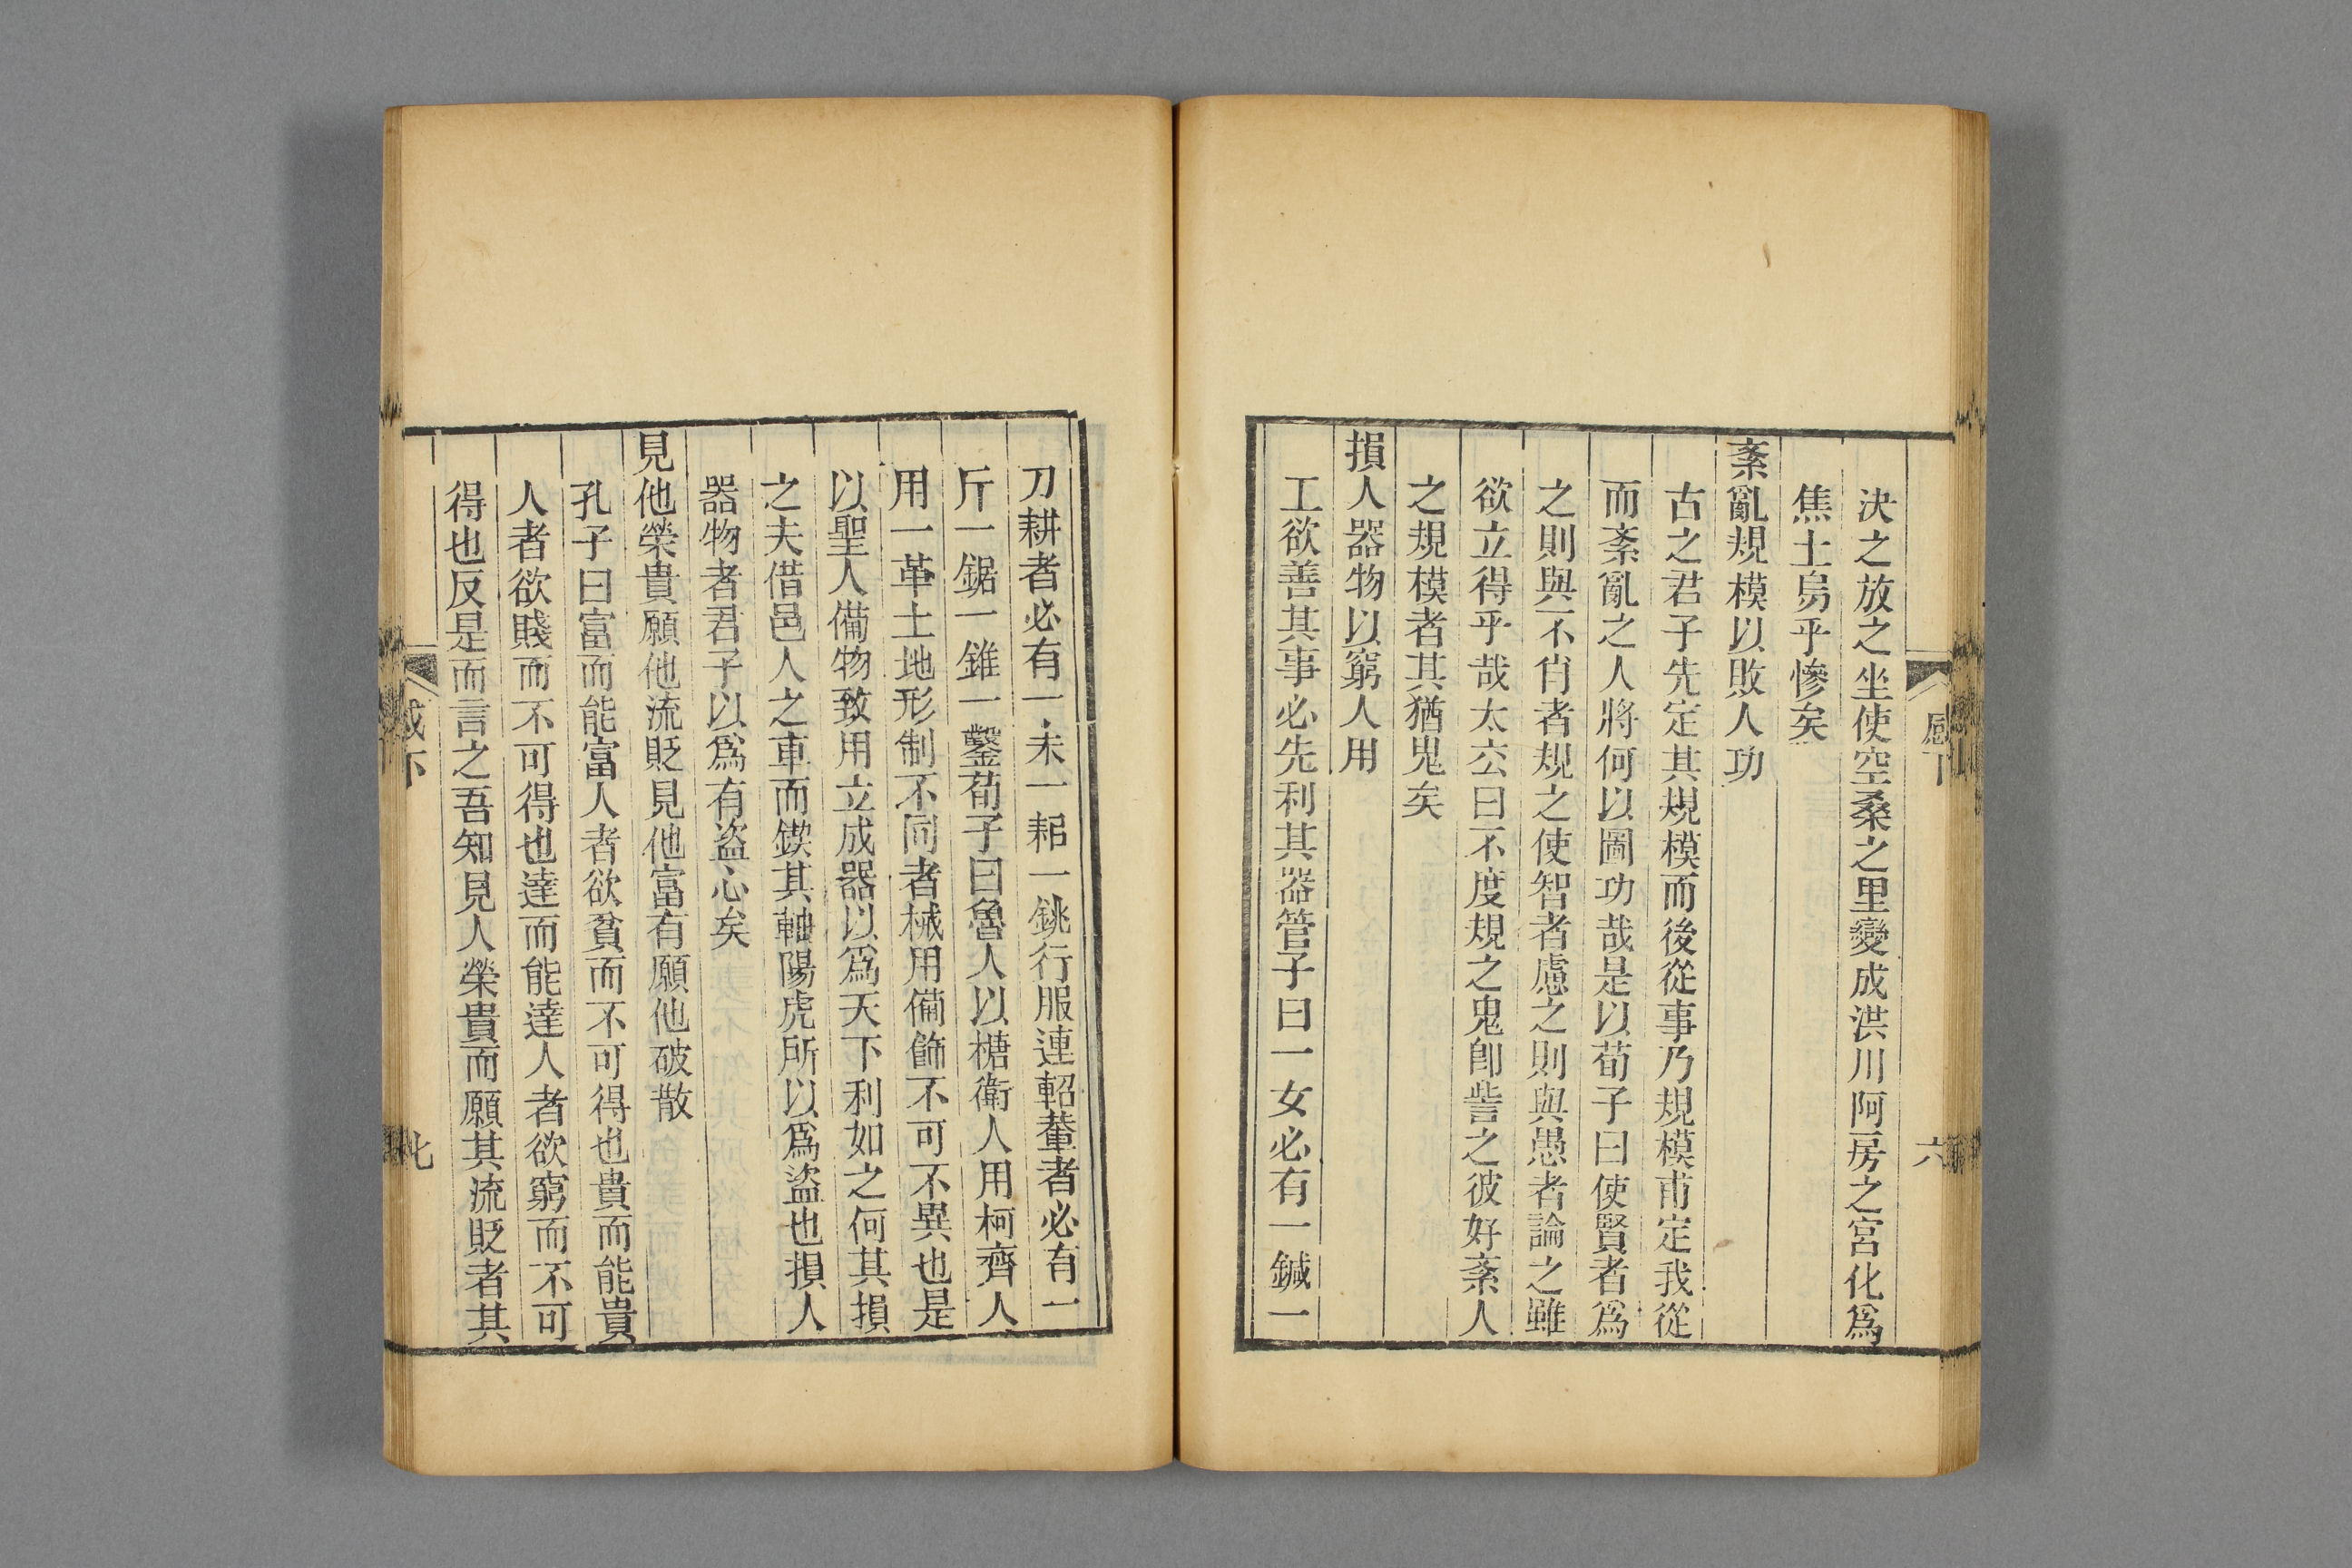 決之放之坐使空桑之里變成洪川阿房之宮化爲
焦土烏乎慘矣
紊亂規模以敗人功
古之君子先定其規模而後從事乃規模甫定我從
而紊亂之人將何以圖功哉是以荀子曰使賢者爲
之則與不肖者規之使智者慮之則與愚者論之雖
欲立得乎哉太公曰不度規之鬼卽訾之彼好紊人
之規模者其猶鬼矣
損人器物以窮人用
工欲善其事必先利其器管子曰一女必有一鍼一
刀耕者必有一耒一耜一銚行服連軺輂者必有一
斤一鋸一錐一鑿荀子曰魯人以榶衛人用柯齊人
用一革土地形制不同者械用備飾不可不異也是
以聖人備物致用立成器以爲天下利如之何其損
之夫借邑人之車而鍥其軸陽虎所以爲盜也損人
器物者君子以爲有盜心矣
見他榮貴願他流貶見他富有願他破散
孔子曰富而能富人者欲貧而不可得也貴而能貴
人者欲賤而不可得也達而能達人者欲窮而不可
得也反是而言之吾知見人榮貴而願其流貶者其
感下
六